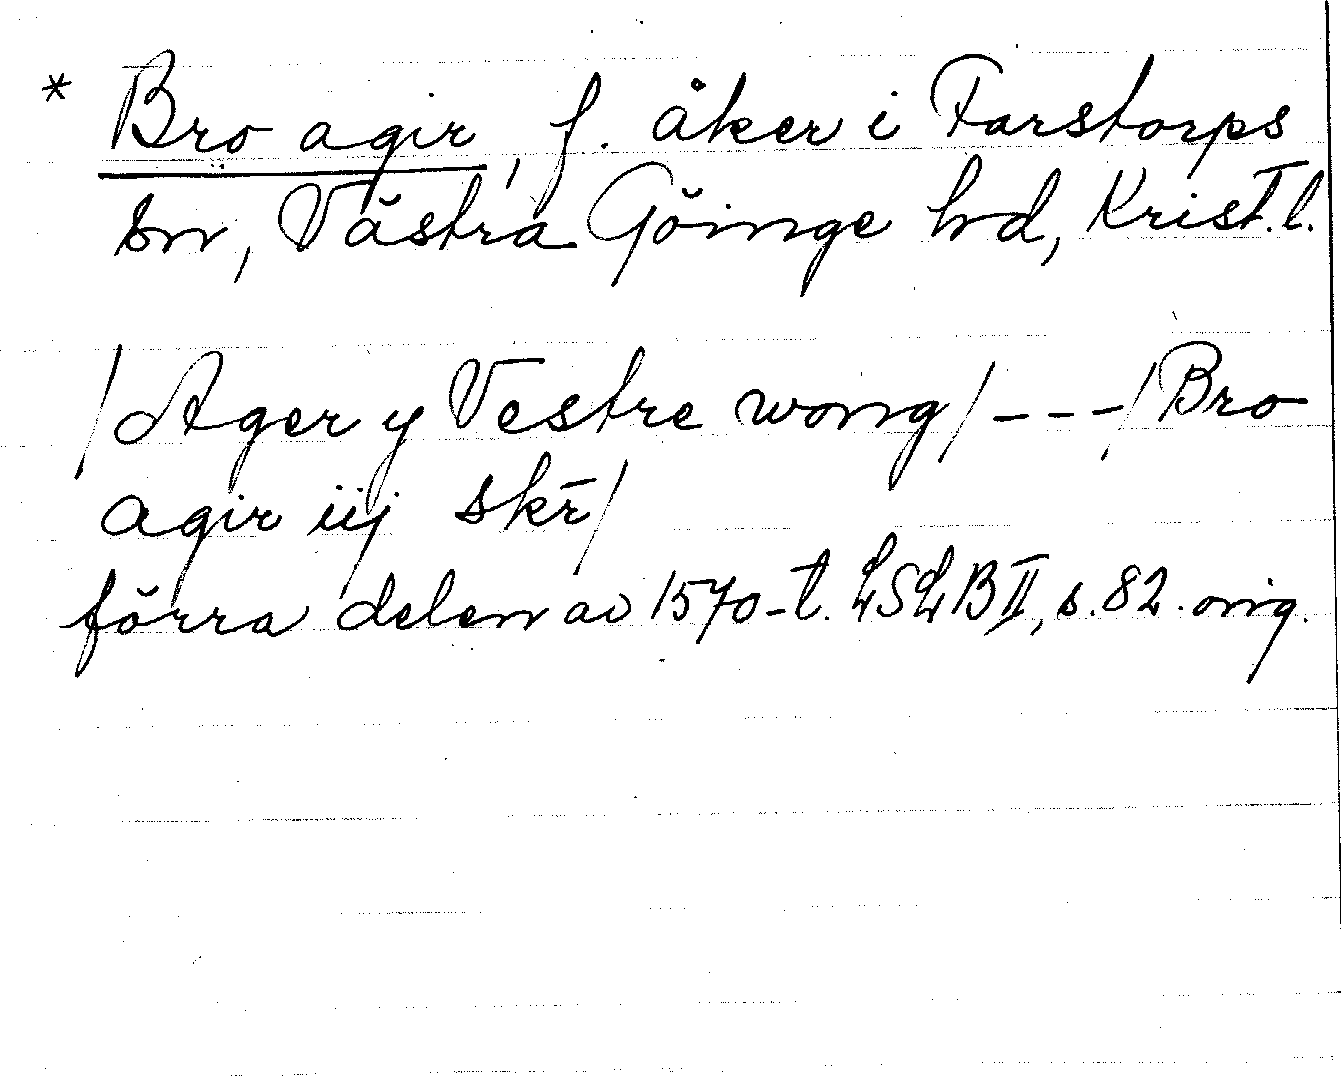 * Bro agir, f. åker i Farstorps
sn, Västra Göinge hd, Krist. l.
/Ager y Vestre wong/ - - - /Bro
agir iij skr̄/
förra delen av 1570-t. LSLB II, s. 82. orig.